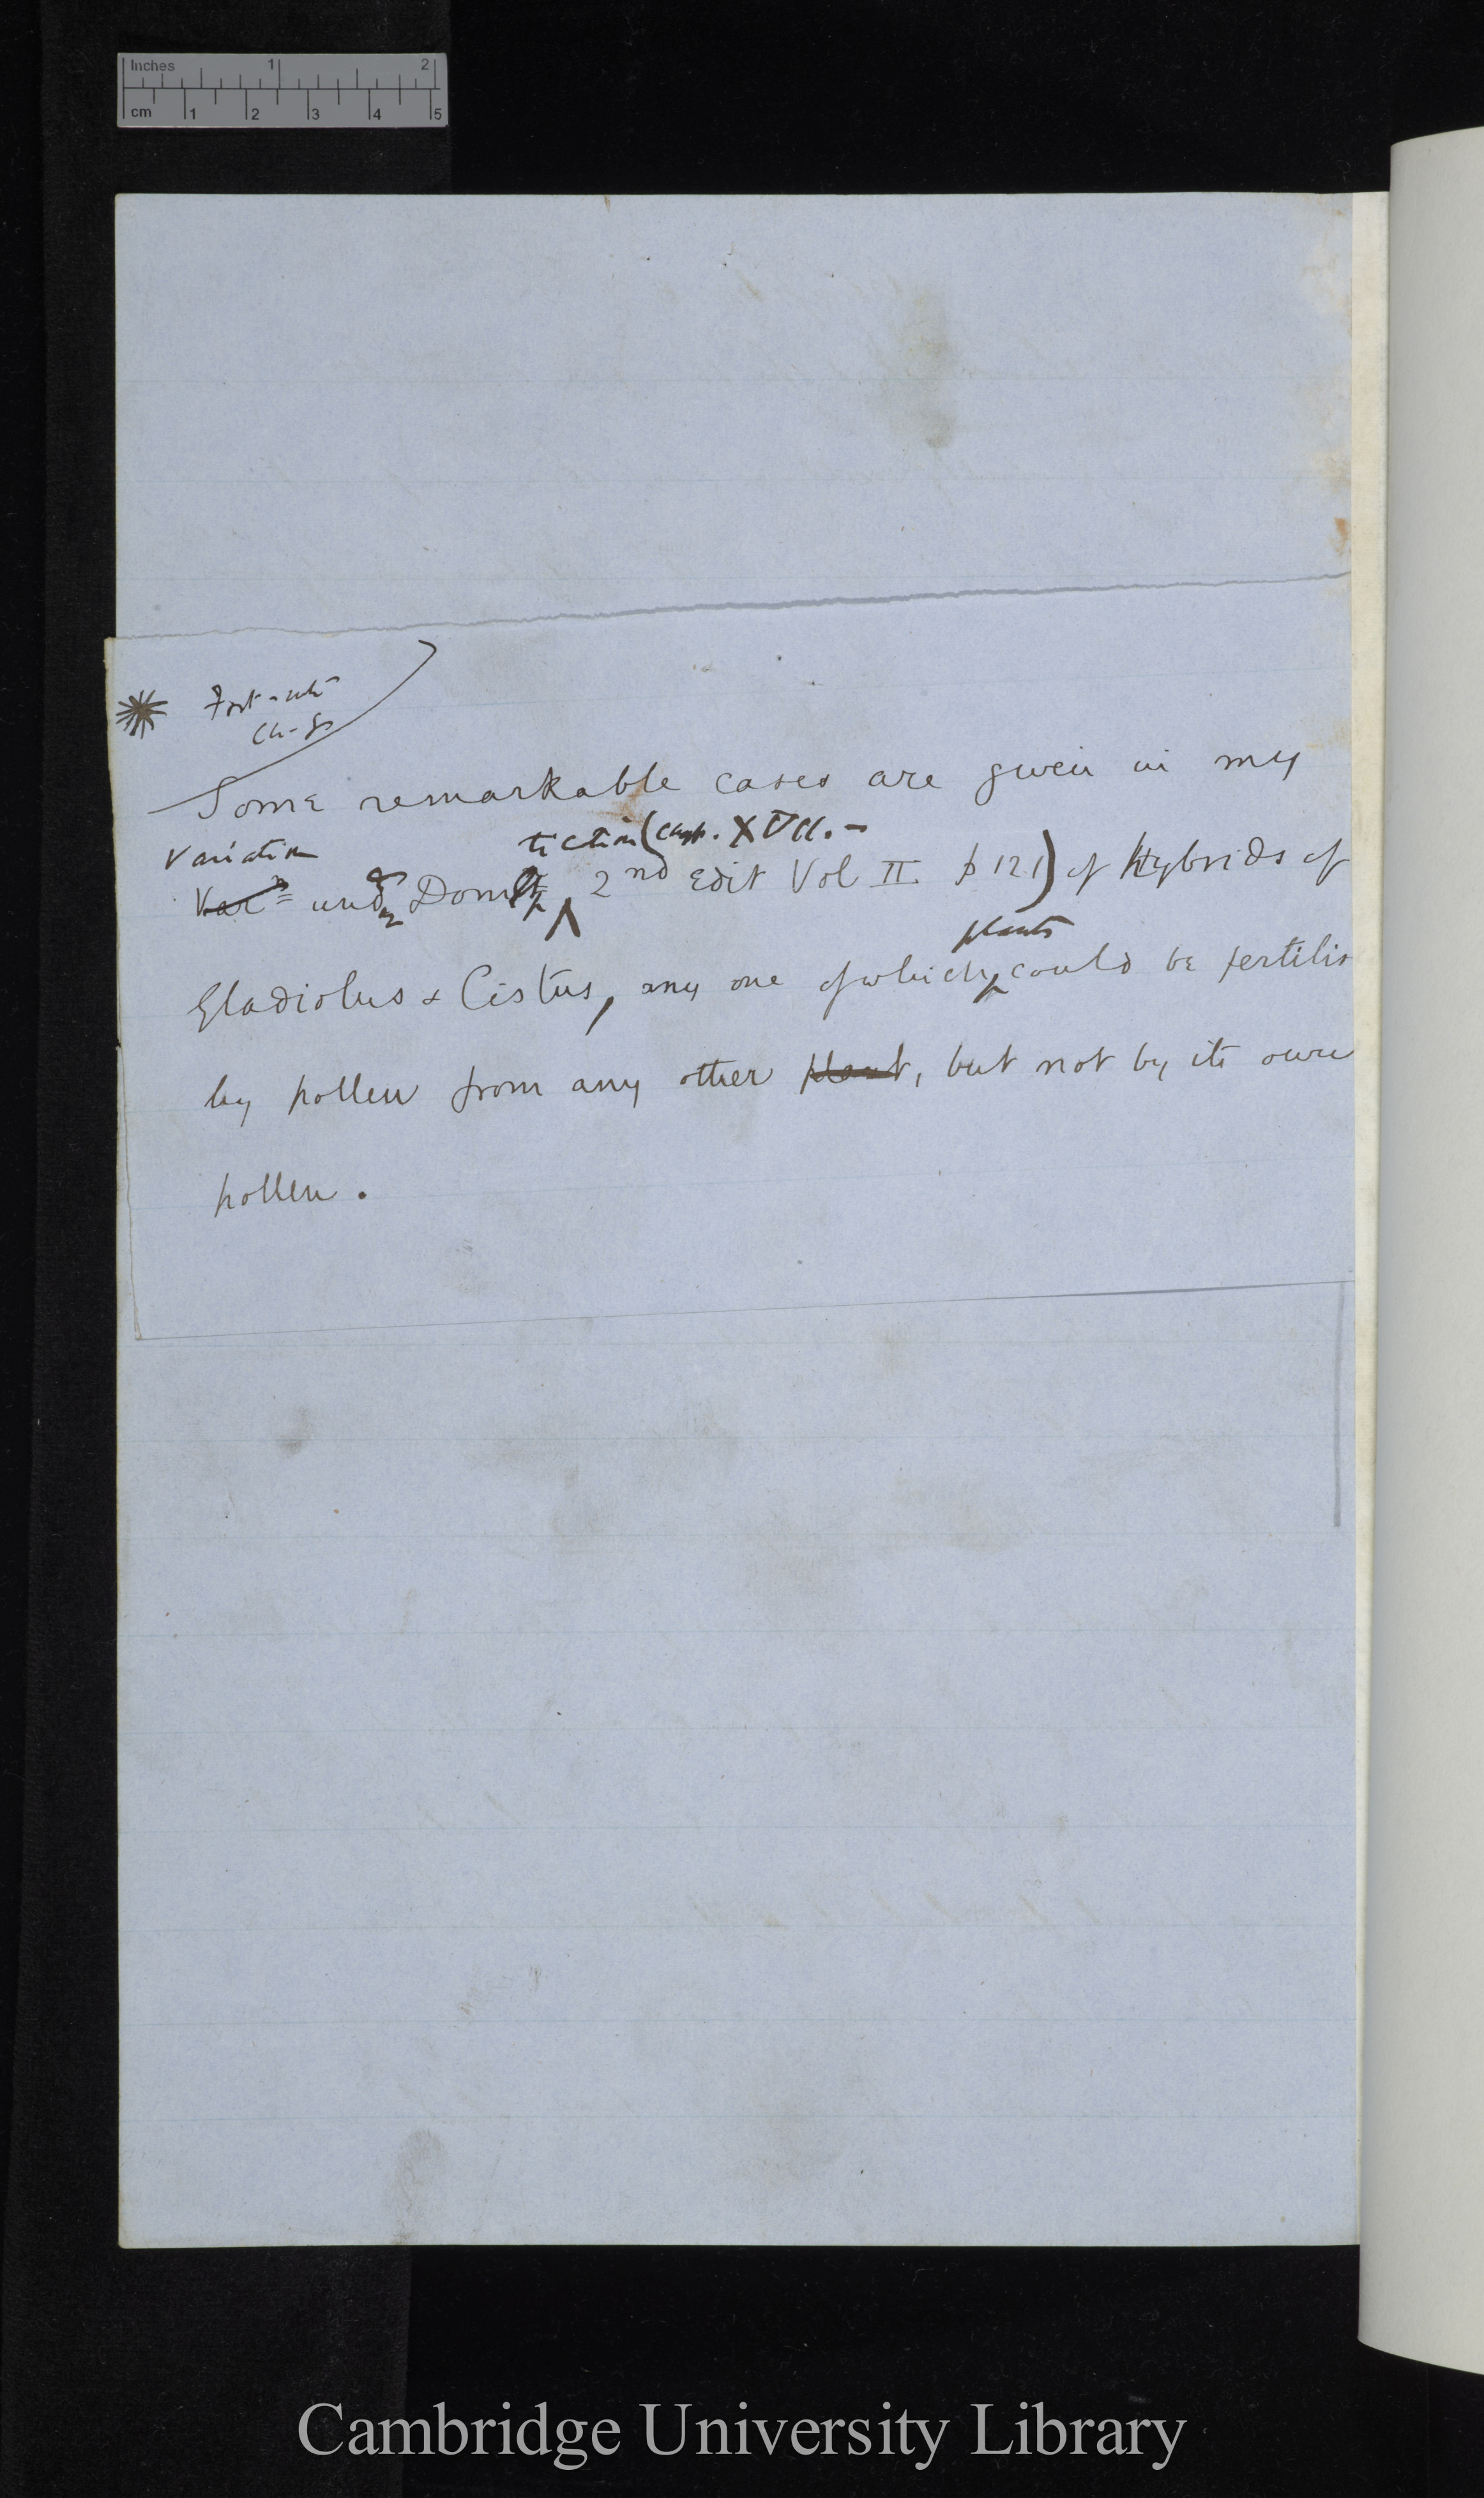 Inches 1 2
cm 1 2 3 4 5
Foot-note
Ch-8
Some remarkable cases are given in my
Variation
tication (Chap. XVII. –
Var⁼ under Domes 2nd Edit Vol II. p 121) of Hybrids of
plants
Gladiolus & Cistus, any one of which could be fertilis
by pollen from any other plant, but not by its own
pollen.
Cambridge University Library